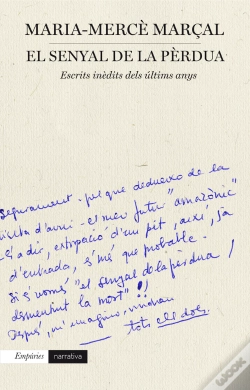 MARIA-MERCÈ MARÇAL
EL SENYAL DE LA PÈRDUA
Escrits inèdits dels últims anys
segurament. pel que dedueixo de la
visita d'avui - el meu futur "amazònic"
és a dir, extirpació d'un pit, així, ja
d'entrada, s'ha que probable.
Si és només "el senyal de la pèrdua /
desmentint la mort"!
Després, m'imagino, vindran
tots els dols.
Empúries narrativa
wook